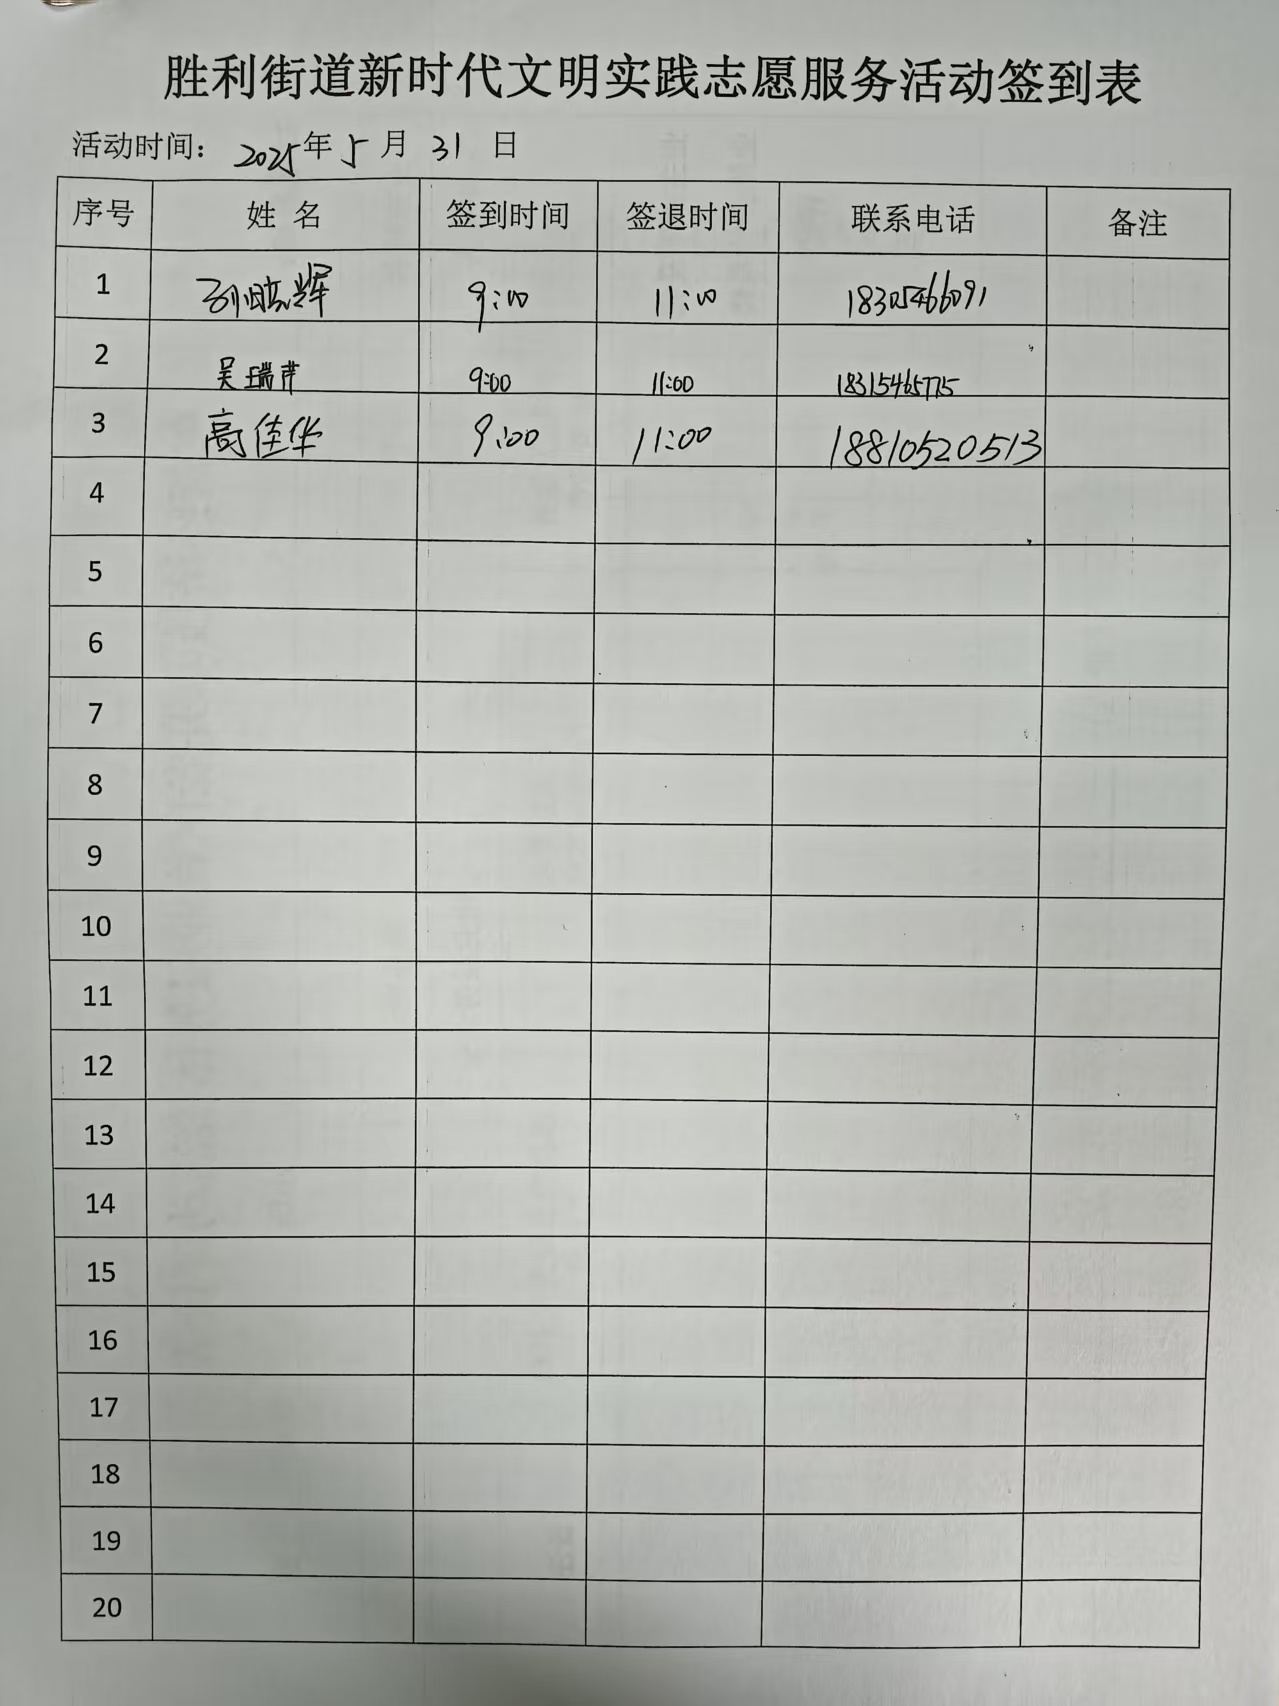 胜利街道新时代文明实践志愿服务活动签到表
活动时间： 2025年 5 月 31 日
序号 姓 名 签到时间 签退时间 联系电话 备注
1 9:00 11:00 18305466091
2 吴瑞芹 9:00 11:00 18315465775
3 高佳华 9:00 11:00 18810520513
4
5
6
7
8
9
10
11
12
13
14
15
16
17
18
19
20